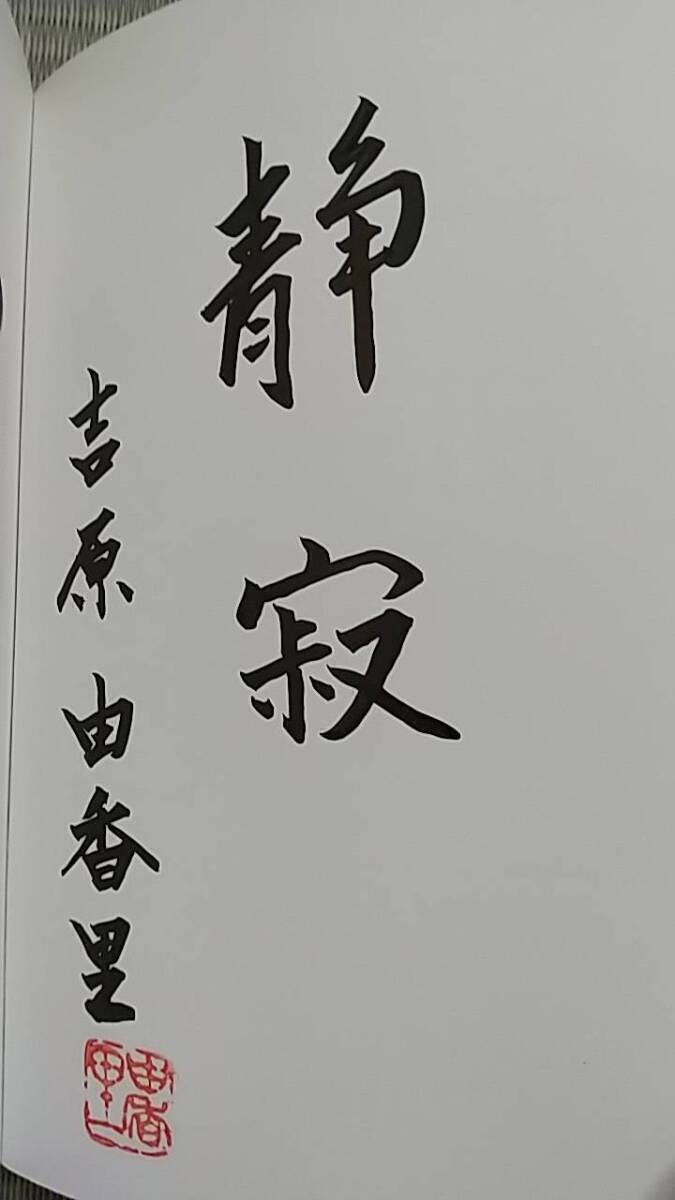 静寂
吉原由香里
由香里